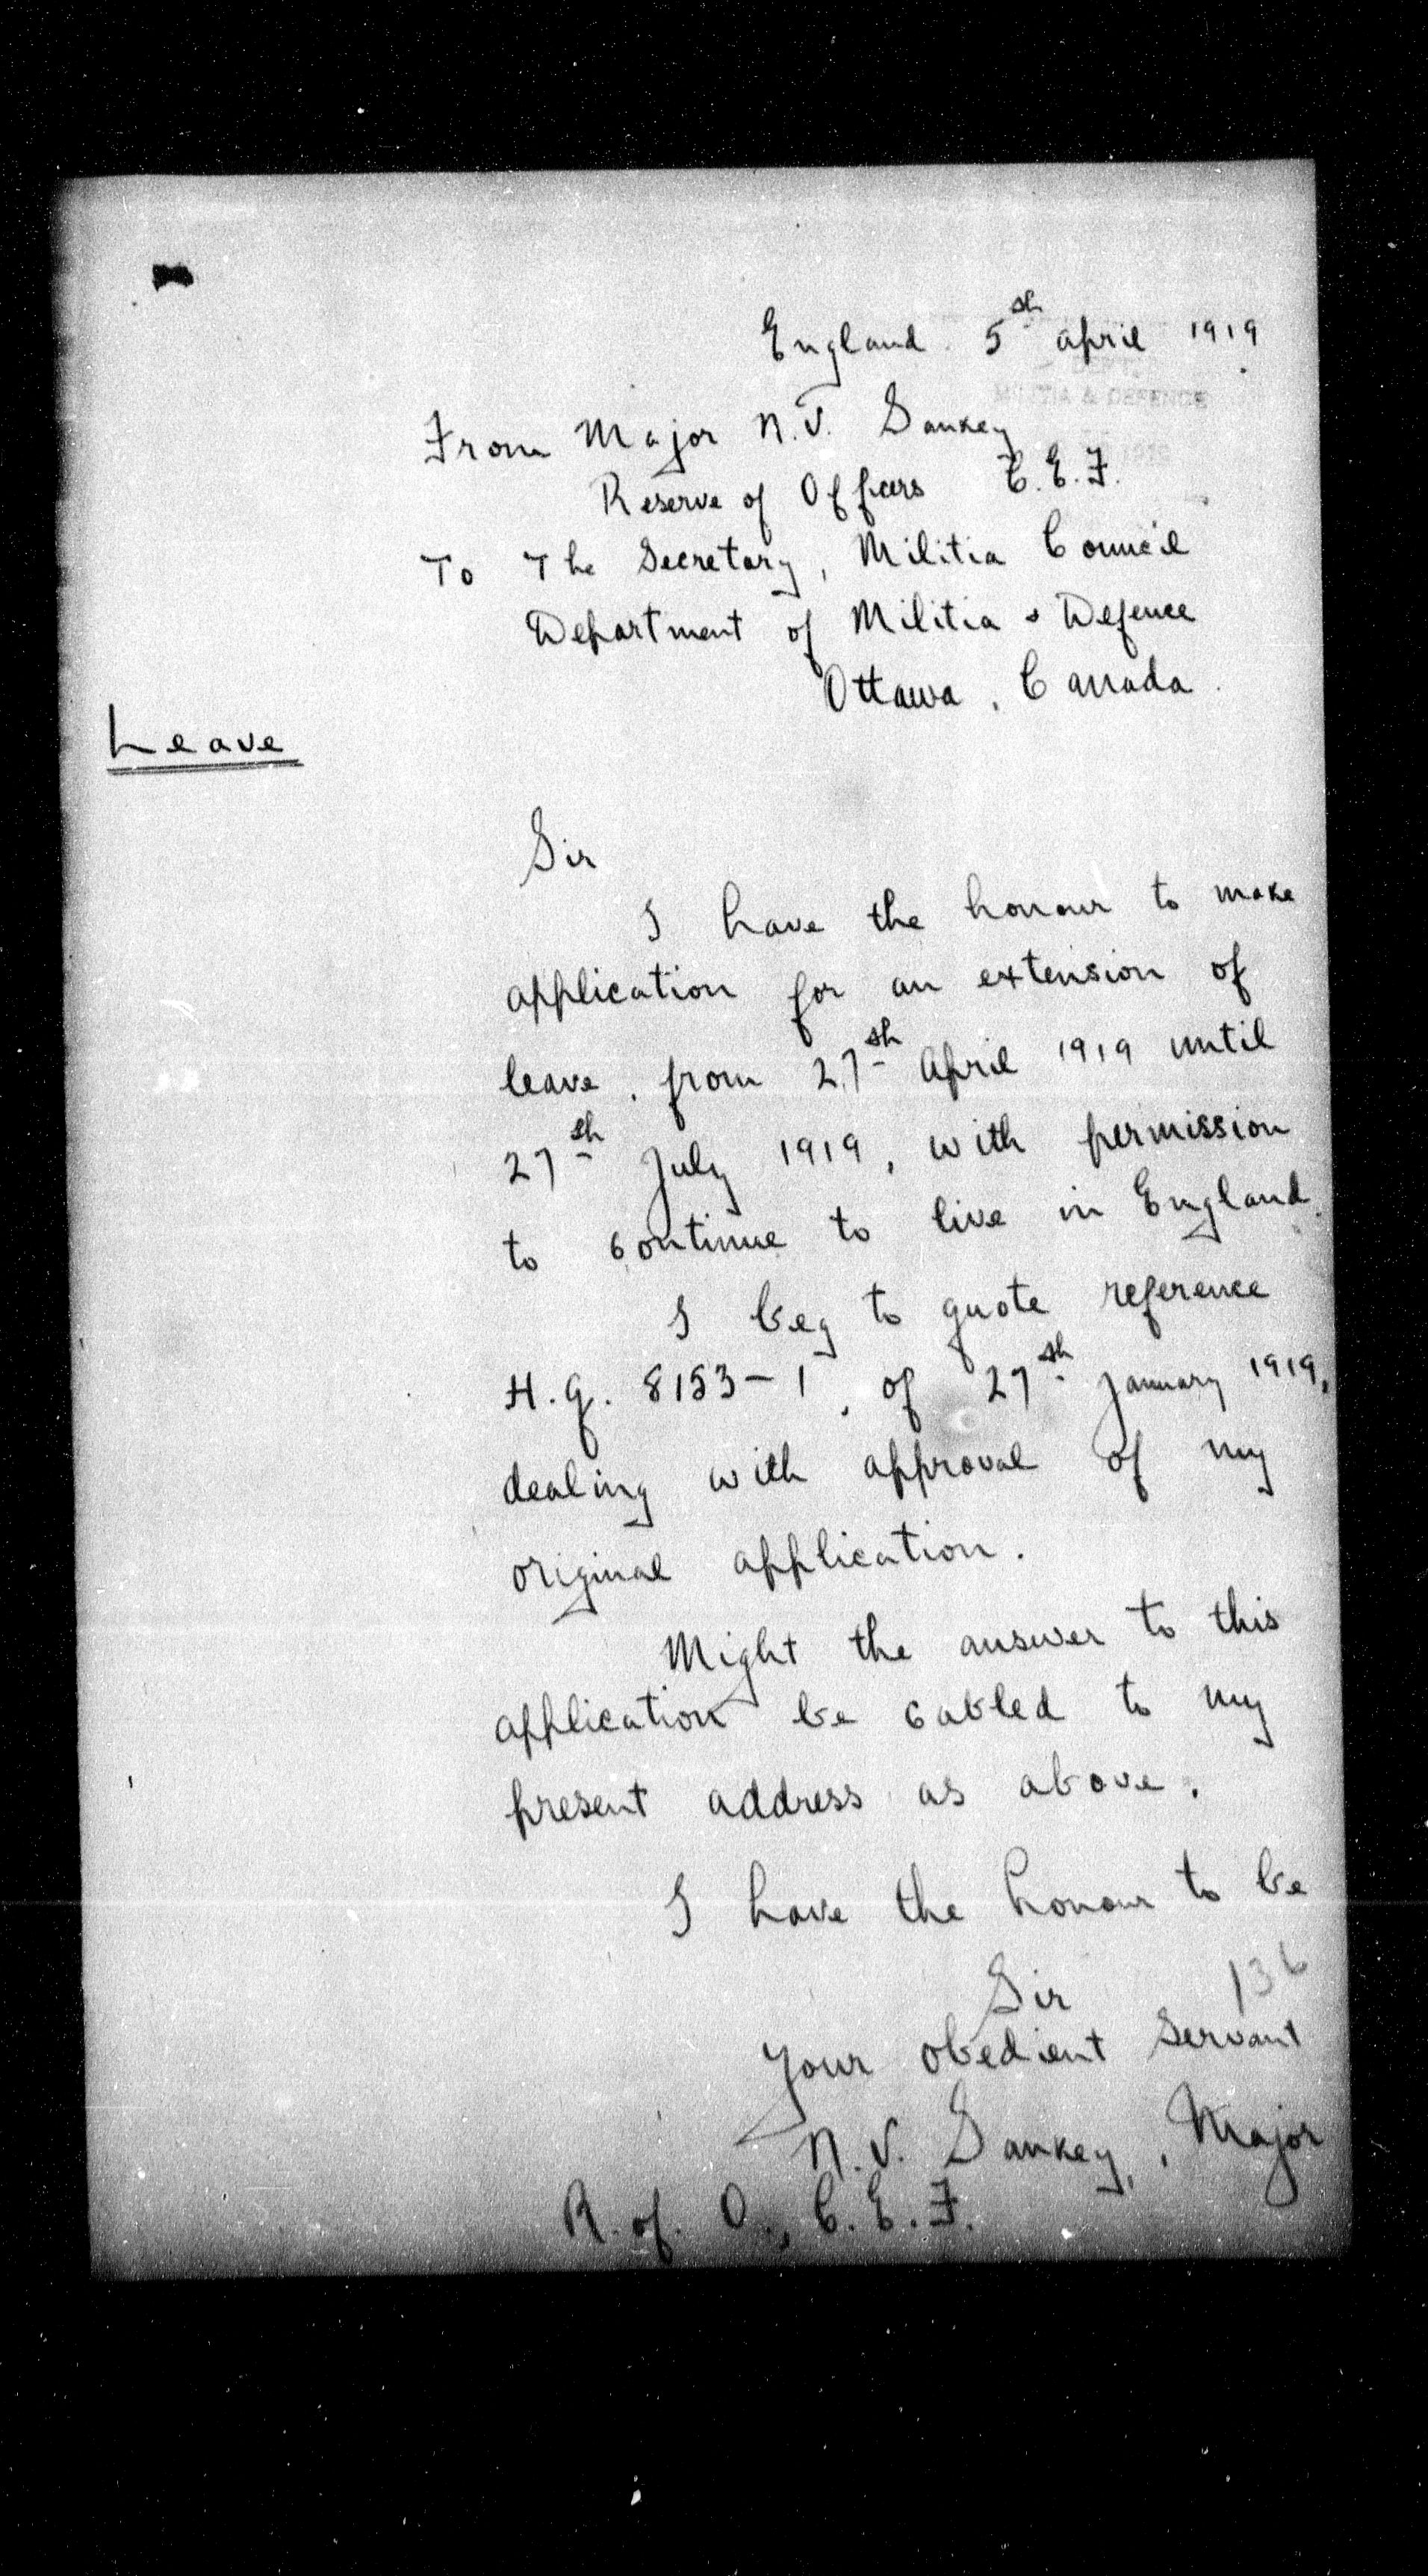 England. 5th April 1919
DEPT.
MILITIA & DEFENCE
From Major N.V. Sankey
Reserve of Officers C.E.F.
To The Secretary, Militia Council
Department of Militia & Defence
Ottawa, Canada.
Leave
Sir
I have the honour to make
application for an extension of
leave, from 27th April 1919 until
27th July 1919, with permission
to continue to live in England.
I beg to quote reference
H.Q. 8153-1, of 27th January 1919,
dealing with approval of my
original application.
Might the answer to this
application be cabled to my
present address as above.
I have the honour to be
Sir
136
Your obedient servant
N.V. Sankey, Major
R. of. O., C.E.F.